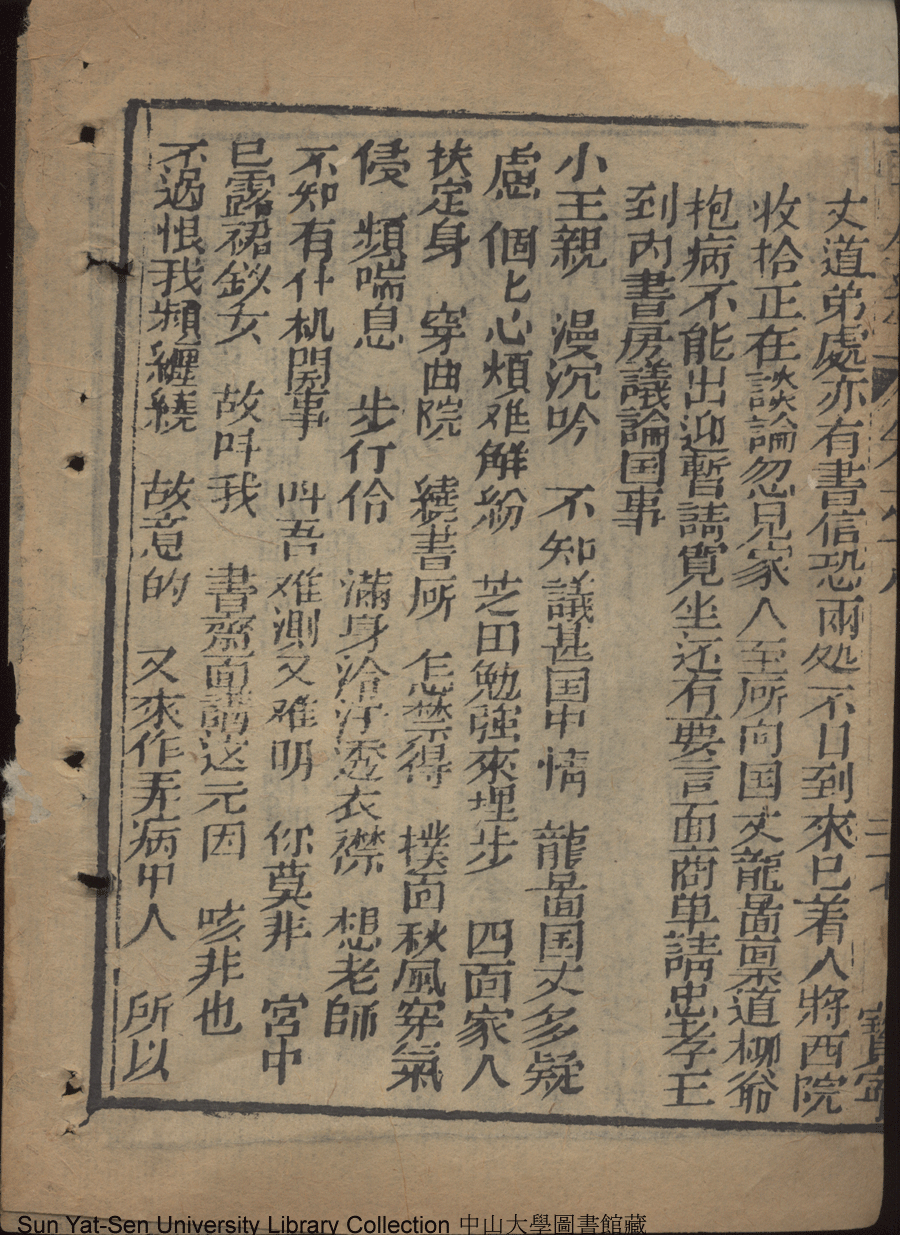 丈道弟處亦有書信恐兩处不日到來已着人將西院
收拾正在談論忽見家人至所向国丈龍啚禀道柳爺
抱病不能出迎暫請寬坐还有要言面商单請忠孝王
到內書房議論国事
小王親 漫沉吟 不知議甚国中情 龍啚国丈多疑
慮 個匕心煩难解紛 芝田勉強來埋步 四面家人
扶定身 穿曲院 繞書所 怎禁得 撲面秋風穿氣
侵 頻喘息 步行伶 滿身冷汗透衣襟 想老師
不知有什机関事 呌吾难測又难明 你莫非 宮中
已露裙釵女 故呌我 書齋面講这元因 咳非也
不過恨我頻纏繞 故意的 又來作弄病中人 所以
二十七
寶寧
Sun Yat-Sen University Library Collection 中山大學圖書館藏